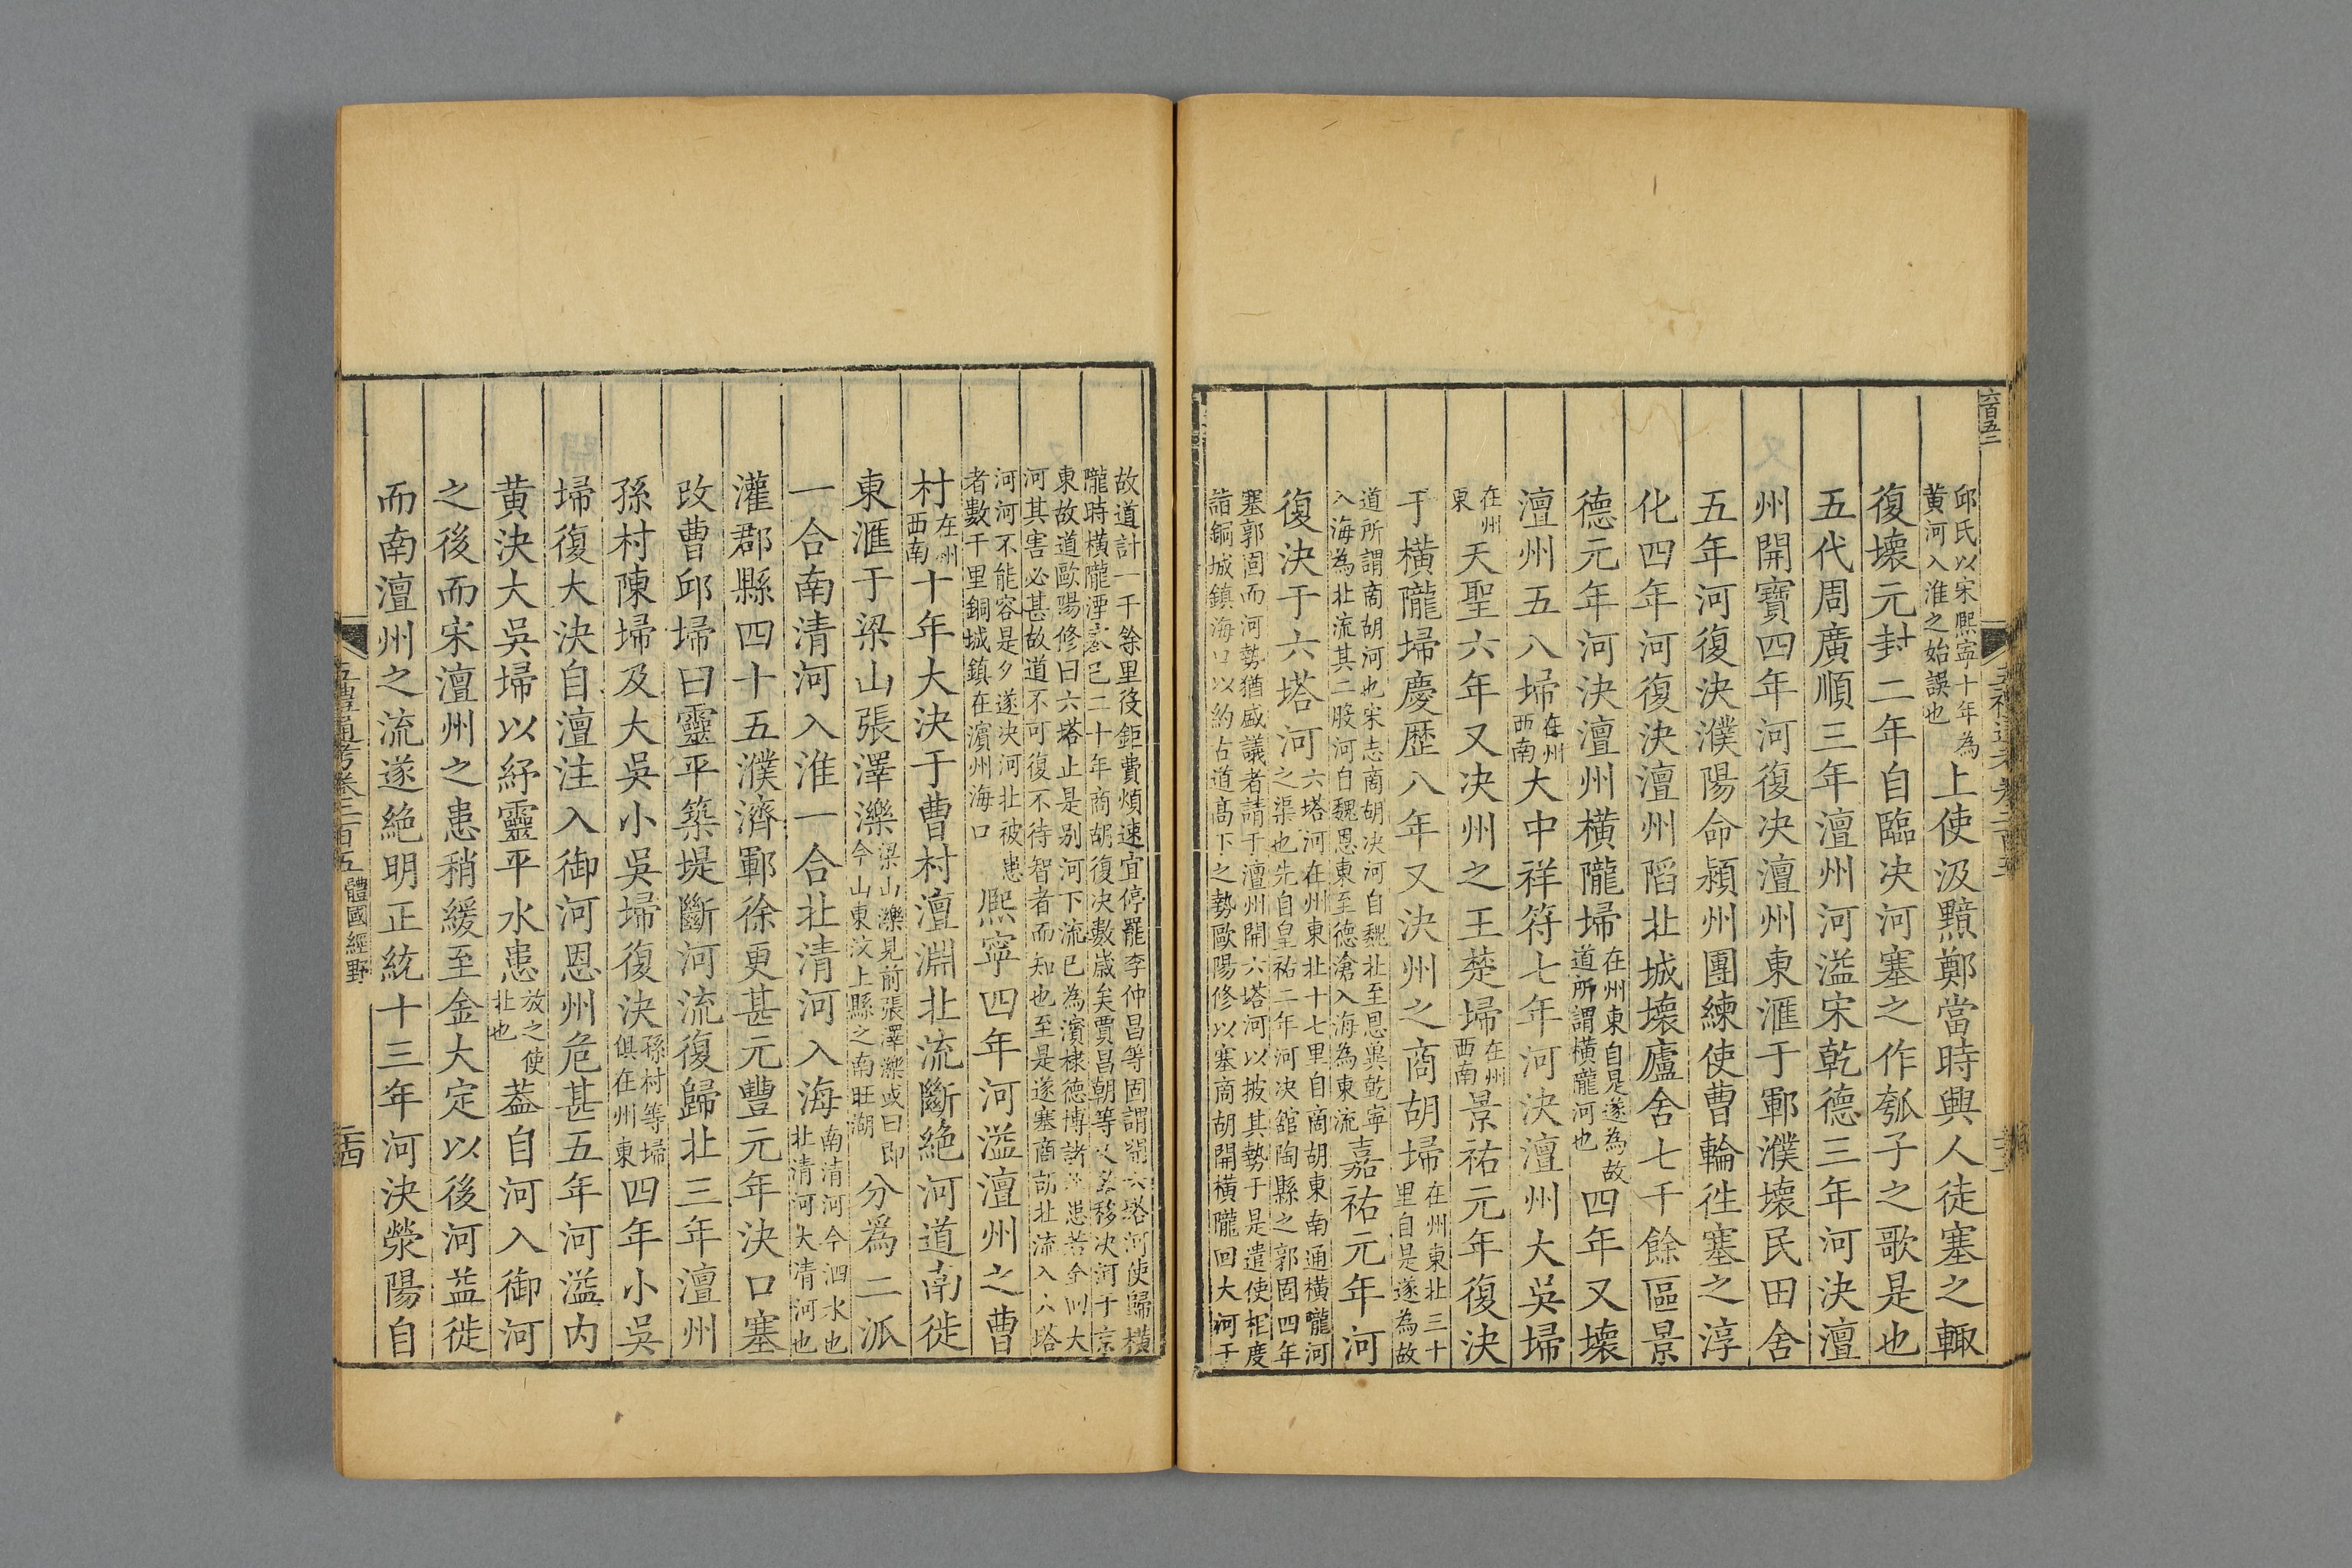 六百五二
邱氏以宋熙寧十年為
黄河入淮之始誤也
上使汲黯鄭當時興人徒塞之輙
復壞元封二年自臨决河塞之作瓠子之歌是也
五代周廣順三年澶州河溢宋乾德三年河決澶
州開寶四年河復决澶州東滙于鄆濮壞民田舍
五年河復決濮陽命潁州團練使曹輪徃塞之淳
化四年河復决澶州䧟北城壞廬舍七千餘區景
德元年河決澶州橫隴埽
在州東自是遂為故
道所謂橫隴河也
四年又壞
澶州五八埽
在州
西南
大中祥符七年河決澶州大吳埽
在州
東
天聖六年又決州之王楚埽
在州
西南
景祐元年復決
于橫隴埽慶歷八年又決州之商胡埽
在州東北三十
里自是遂為故
道所謂商胡河也宋志商胡决河自魏北至恩冀乾寧
入海為北流其二股河自魏恩東至德滄入海為東流
嘉祐元年河
復決于六塔河
六塔河在州東北十七里自商胡東南通橫隴河
之渠也先自皇祐二年河决舘陶縣之郭固四年
塞郭固而河勢猶威議者請于澶州開六塔河以披其勢于是遣使相度
詣銅城鎮海口以約古道高下之勢歐陽修以塞商胡開橫隴回大河于
故道計一千餘里役鉅費煩速宜停罷李仲昌等固謂開六塔河使歸橫
隴時橫隴湮塞已二十年商胡復决數歲矣賈昌朝等
决河于京
東故道歐陽修曰六塔止是别河下流已為濱棣德博
患若全回大
河其害必甚故道不可復不待智者而知也至是遂塞商胡北流入六塔
河河不能容是夕遂决河北被患
者數千里銅城鎮在濱州海口
熈寧四年河溢澶州之曹
村
在州
西南
十年大決于曹村澶淵北流斷絶河道南徙
東滙于梁山張澤濼
梁山濼見前張澤濼或曰即
今山東汶上縣之南旺湖
分爲二派
一合南清河入淮一合北清河入海
南清河今泗水也
北清河大清河也
灌郡縣四十五濮濟鄆徐更甚元豐元年決口塞
改曹邱埽曰靈平築堤斷河流復歸北三年澶州
孫村陳埽及大吳小吳埽復決
孫村等埽
俱在州東
四年小吳
埽復大決自澶注入御河恩州危甚五年河溢内
黄決大吳埽以紓靈平水患
放之使
北也
蓋自河入御河
之後而宋澶州之患稍緩至金大定以後河益徙
而南澶州之流遂絶明正統十三年河決滎陽自
五禮通考卷二百五 體國經野